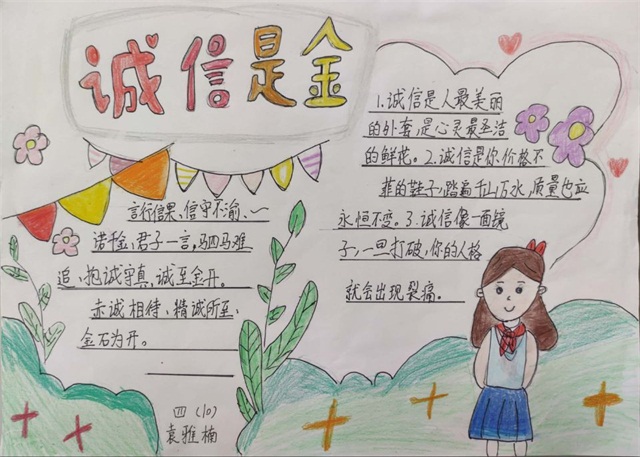 诚信是金
言行信果、信守不渝、一
诺千金、君子一言，驷马难
追、抱诚守真，诚至金开。
赤诚相待、精诚所至、
金石为开。
四（10）
袁雅楠
1.诚信是人最美丽
的外套，是心灵最圣洁
的鲜花。2.诚信是你价格不
菲的鞋子，踏遍千山万水，质量也应
永恒不变。3.诚信像一面镜
子，一旦打破，你的人格
就会出现裂痕。